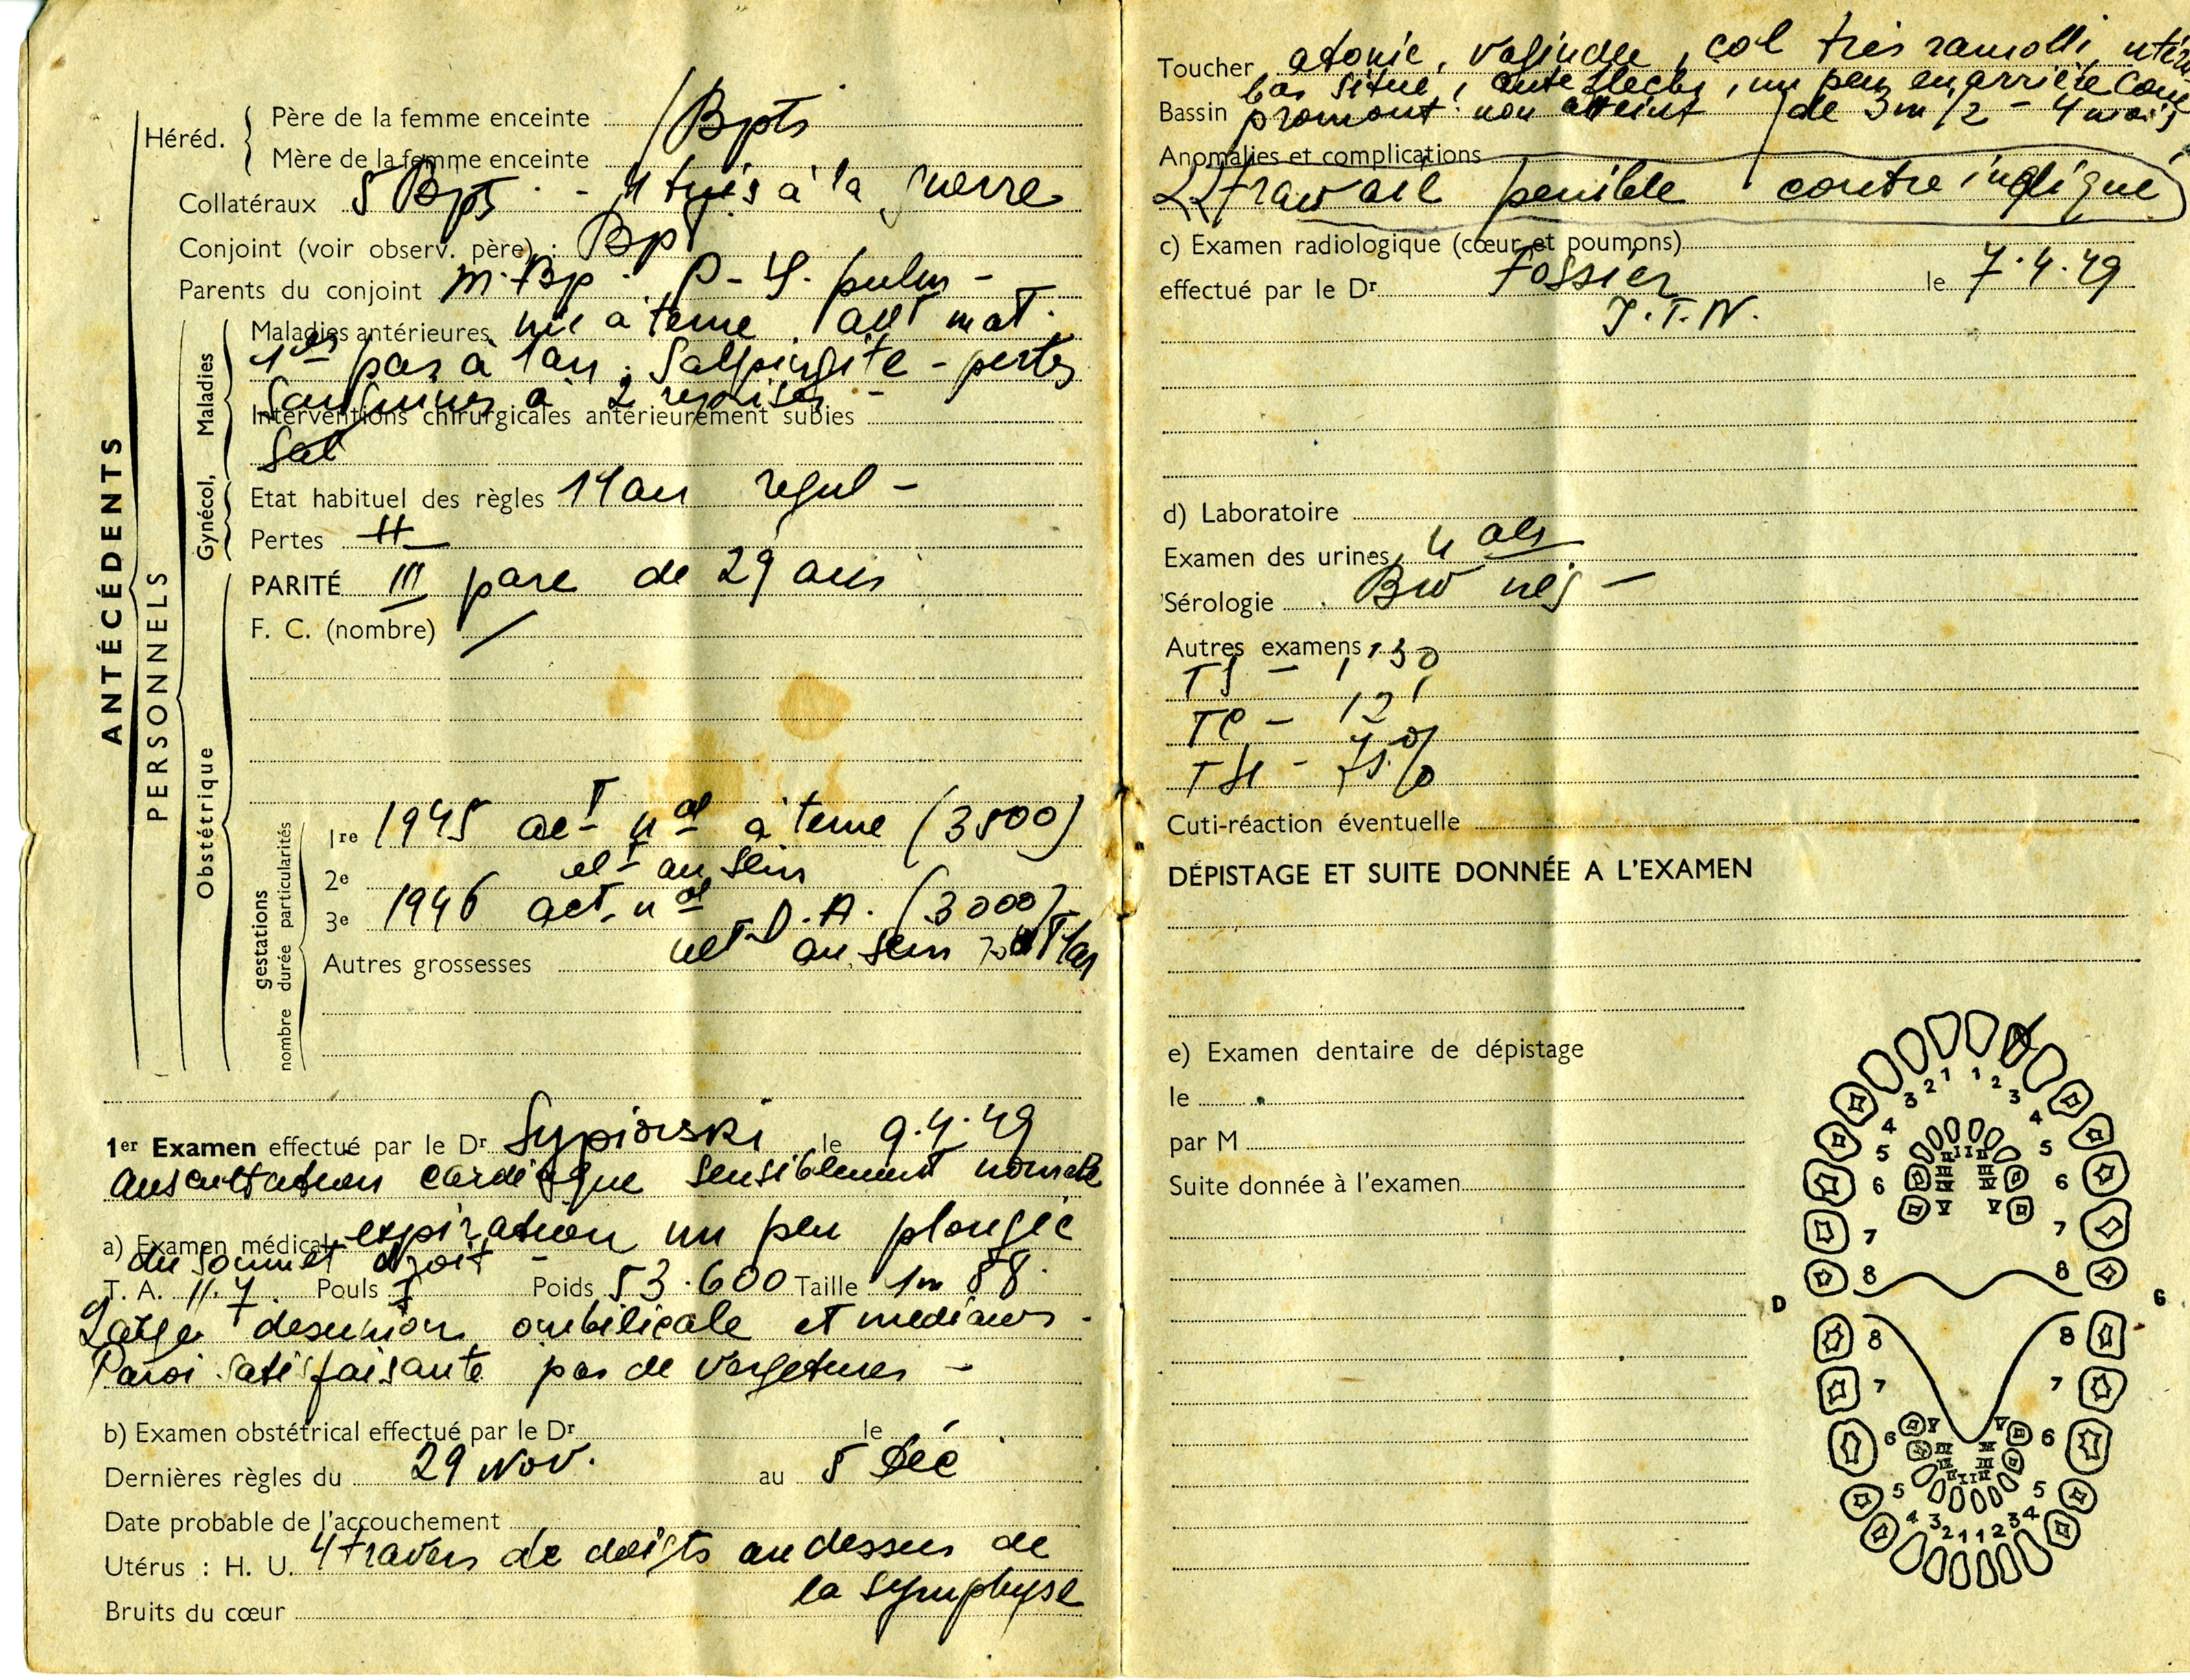 Héréd.
Père de la femme enceinte / Bpts
Mère de la femme enceinte
Collatéraux 5 Bpts - 4 tués à la guerre
Conjoint (voir observ. père) : Bpt
Parents du conjoint m. Bp. P -
Maladies antérieures née à terme. alt mat.
1ers pas à 1 an. Salpingite - pertes
sanguines à 2 reprises -
Interventions chirurgicales antérieurement subies
Etat habituel des règles 14 ans regul -
Pertes ++
PARITÉ III pare de 29 ans
F. C. (nombre) /
ANTÉCÉDENTS
PERSONNELS
Maladies
Gynécol,
Obstétrique
gestations
nombre durée particularités
1re 1945 act nal à terme (3500)
alt au sein
2e
3e 1946 act. nal D.A. (3000)
au sein
Autres grossesses
1er Examen effectué par le Dr Sypiorski le 9.4.49
auscultation cardiaque sensiblement normale
a) Examen médical expiration un peu plongée
du sommet droit -
T. A. 11.7 Pouls Poids 53.600 Taille 1m 58.
Large desunion ombilicale et mediane -
Paroi satisfaisante pas de vergetures -
b) Examen obstétrical effectué par le Dr le
Dernières règles du 29 Nov. au 5 Déc
Date probable de l'accouchement
Utérus : H. U. 4 travers de doigts au dessus de
la symphyse
Bruits du cœur
Toucher atonie, vaginale, col très ramolli, utérus
bas situé, antéflechi, un peu en arrière
Bassin promont. non atteint de 3m 1/2 - 4 mois
Anomalies et complications
travail penible contre indiqué
c) Examen radiologique (cœur et poumons)
effectué par le Dr Fossier le 7.4.49
J.T.N.
d) Laboratoire
Examen des urines
Sérologie BW nég -
Autres examens
TS - 1'30
TC - 12'
TH - 75%
Cuti-réaction éventuelle
DÉPISTAGE ET SUITE DONNÉE A L'EXAMEN
e) Examen dentaire de dépistage
le
par M
Suite donnée à l'examen
3 2 1 1 2 3
4 4
5 5
6 6
7 7
8 8
D G
8 8
7 7
6 6
5 5
4 3 2 1 1 2 3 4